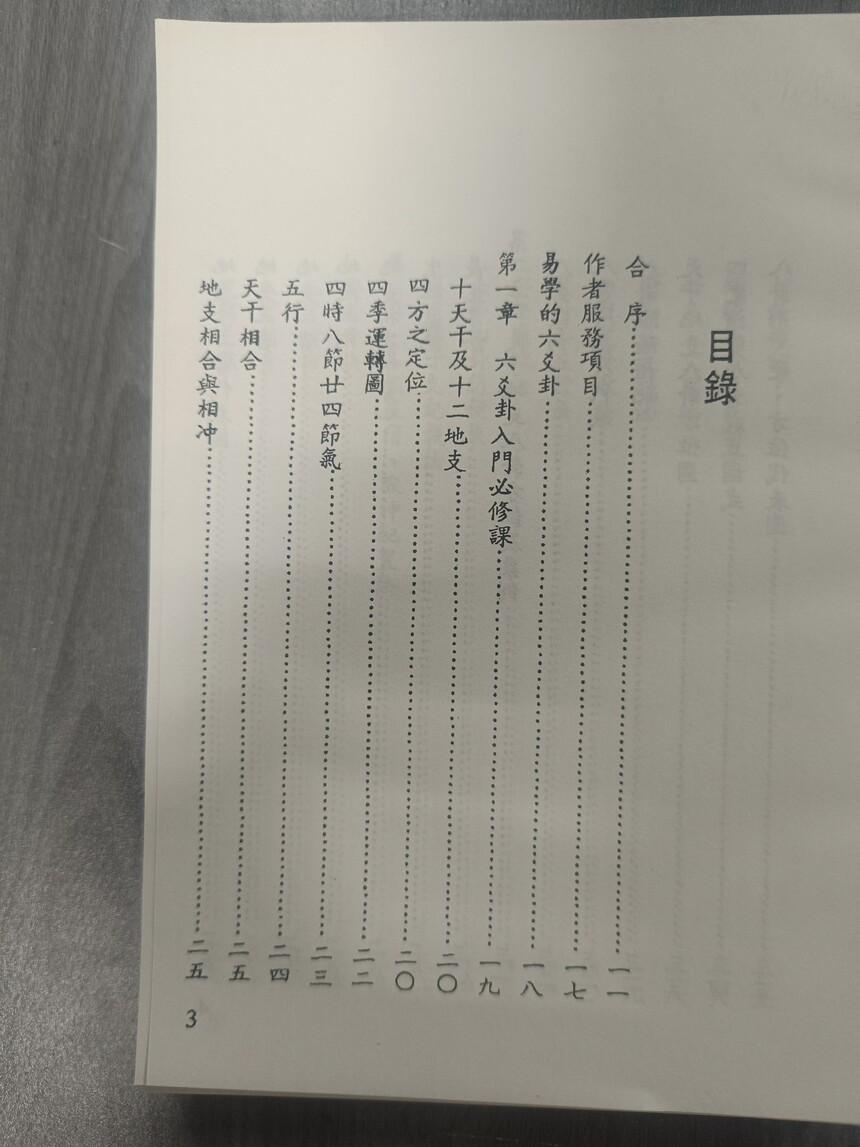 目錄
合 序……一一
作者服務項目……一七
易學的六爻卦……一八
第一章 六爻卦入門必修課……一九
十天干及十二地支……二〇
四方之定位……二〇
四季運轉圖……二二
四時八節廿四節氣……二三
五行……二四
天干相合……二五
地支相合與相冲……二五
3